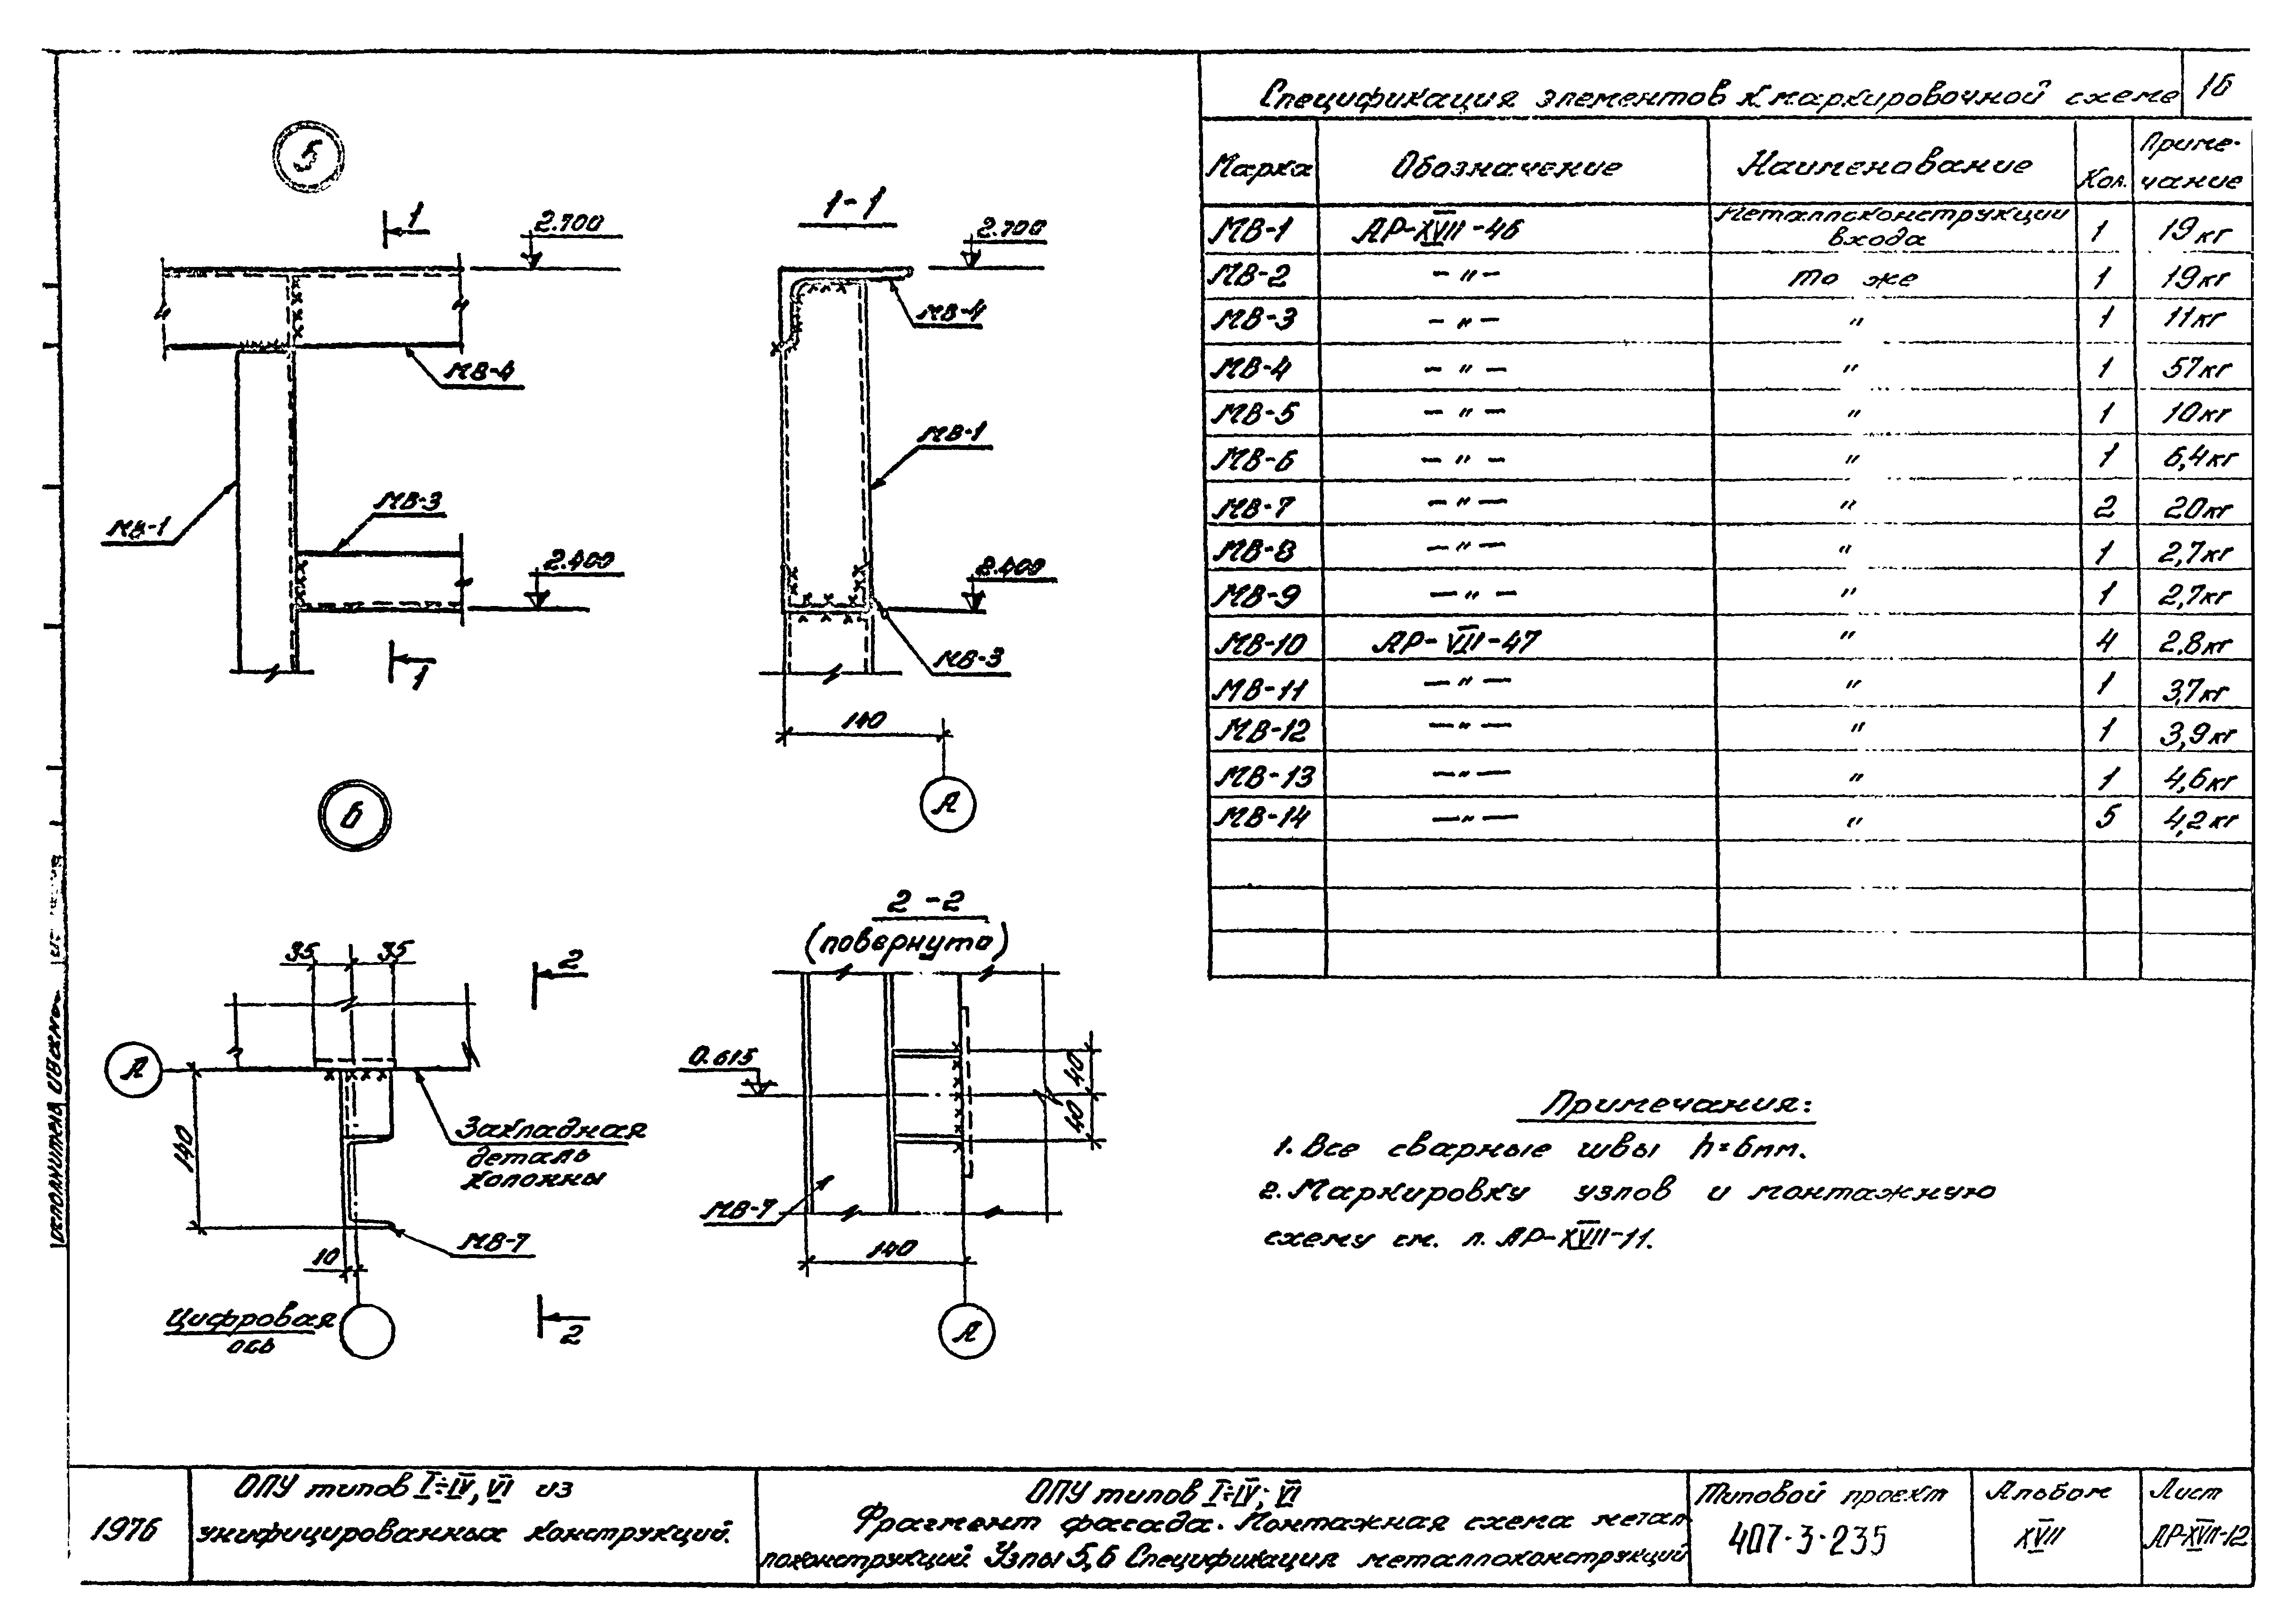 Спецификация элементов к маркировочной схеме
16
Марка Обозначение Наименование Кол. Приме-
чание
МВ-1 АР-XVII-46 Металлоконструкции входа 1 19кг
МВ-2 -"- то же 1 19кг
МВ-3 -"- " 1 11кг
МВ-4 -"- " 1 57кг
МВ-5 -"- " 1 10кг
МВ-6 -"- " 1 6,4кг
МВ-7 -"- " 2 20кг
МВ-8 -"- " 1 2,7кг
МВ-9 -"- " 1 2,7кг
МВ-10 АР-VII-47 " 4 2,8кг
МВ-11 -"- " 1 3,7кг
МВ-12 -"- " 1 3,9кг
МВ-13 -"- " 1 4,6кг
МВ-14 -"- " 5 4,2кг
5
1
2.700
МВ-4
МВ-3
МВ-1
2.400
1
1-1
2.700
МВ-4
МВ-1
2.400
МВ-3
140
А
6
35 35
2
А
140
Закладная
деталь
колонны
МВ-7
10
Цифровая
ось
2
2-2
(повернуто)
0.615
40
40
МВ-7
140
А
Примечания:
1. Все сварные швы h=6мм.
2. Маркировку узлов и монтажную
схему см. л. АР-XVII-11.
1976
ОПУ типов I÷IV, VI из
унифицированных конструкций.
ОПУ типов I÷IV; VI
Фрагмент фасада. Монтажная схема метал
локонструкций Узлы 5,6 Спецификация металлоконструкций
Типовой проект
407-3-235
Альбом
XVII
Лист
АР-XVII-12